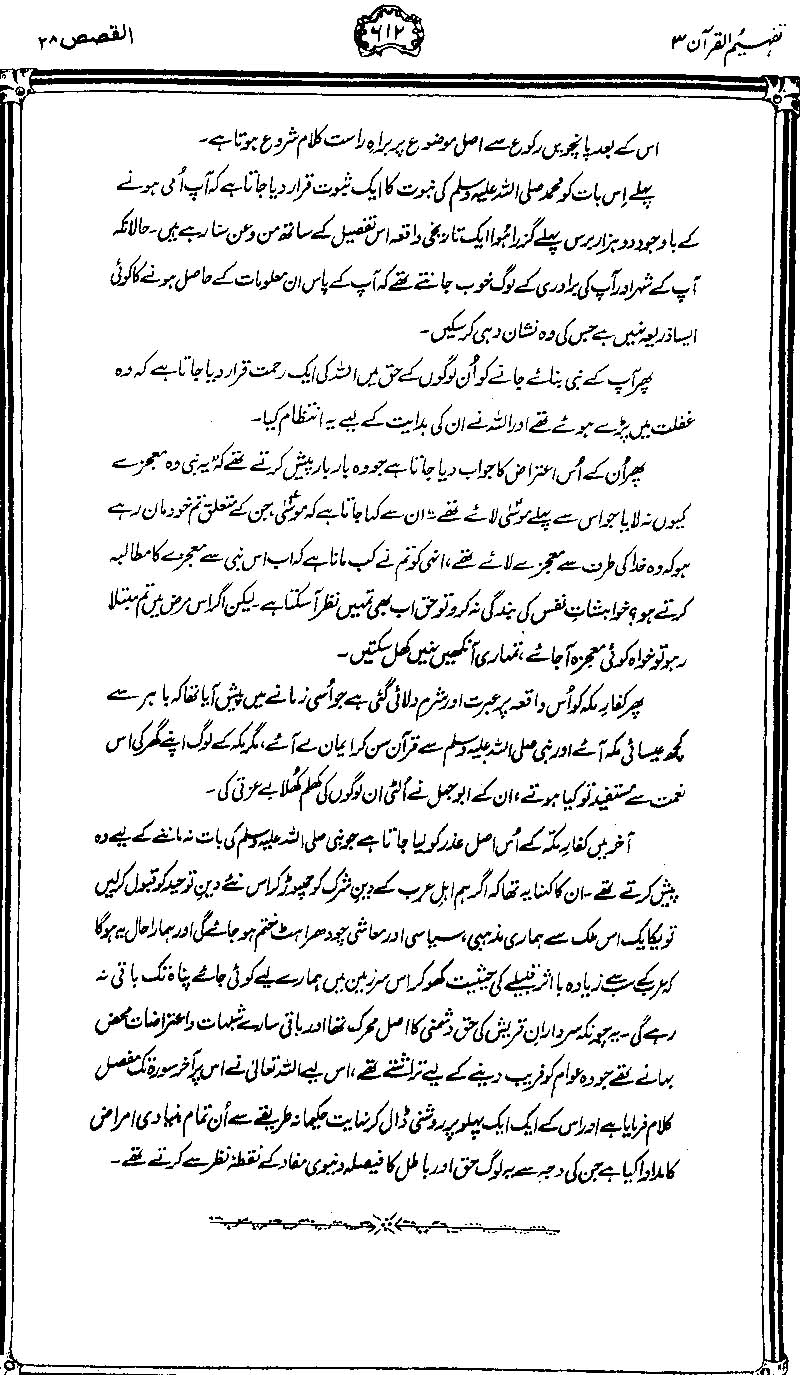 تفہیم القرآن ۳
۶۱۲
القصص ۲۸
اس کے بعد پانچویں رکوع سے اصل موضوع پر براہِ راست کلام شروع ہوتا ہے۔
پہلے اِس بات کو محمد صلی اللہ علیہ وسلم کی نبوت کا ایک ثبوت قرار دیا جاتا ہے کہ آپ اُمی ہونے
کے باوجود دو ہزار برس پہلے گزرا ہُوا ایک تاریخی واقعہ اس تفصیل کے ساتھ من وعن سنا رہے ہیں۔ حالانکہ
آپ کے شہر اور آپ کی برادری کے لوگ خوب جانتے تھے کہ آپ کے پاس ان معلومات کے حاصل ہونے کا کوئی
ایسا ذریعہ نہیں ہے جس کی وہ نشان دہی کر سکیں۔
پھر آپ کے نبی بنائے جانے کو اُن لوگوں کے حق میں اللہ کی ایک رحمت قرار دیا جاتا ہے کہ وہ
غفلت میں پڑے ہوئے تھے اور اللہ نے ان کی ہدایت کے لیے یہ انتظام کیا۔
پھر اُن کے اُس اعتراض کا جواب دیا جاتا ہے جو وہ بار بار پیش کرتے تھے کہ "یہ نبی وہ معجزے
کیوں نہ لایا جو اس سے پہلے موسیٰؑ لائے تھے"۔ ان سے کہا جاتا ہے کہ موسیٰؑ، جن کے متعلق تم خود مان رہے
ہو کہ وہ خدا کی طرف سے معجزے لائے تھے، انہی کو تم نے کب مانا ہے کہ اب اس نبی سے معجزے کا مطالبہ
کرتے ہو؟ خواہشاتِ نفس کی بندگی نہ کرو تو حق اب بھی تمہیں نظر آ سکتا ہے۔ لیکن اگر اس مرض میں تم مبتلا
رہو تو خواہ کوئی معجزہ آ جائے، تمہاری آنکھیں نہیں کھل سکتیں۔
پھر کفارِ مکہ کو اُس واقعہ پر عبرت اور شرم دلائی گئی ہے جو اُسی زمانے میں پیش آیا تھا کہ باہر سے
کچھ عیسائی مکہ آئے اور نبی صلی اللہ علیہ وسلم سے قرآن سن کر ایمان لے آئے، مگر مکہ کے لوگ اپنے گھر کی اس
نعمت سے مستفید تو کیا ہوتے، ان کے ابوجہل نے اُلٹی ان لوگوں کی کھلم کھلا بے عزتی کی۔
آخر میں کفارِ مکہ کے اُس اصل عذر کو لیا جاتا ہے جو نبی صلی اللہ علیہ وسلم کی بات نہ ماننے کے لیے وہ
پیش کرتے تھے۔ ان کا کہنا یہ تھا کہ اگر ہم اہلِ عرب کے دینِ شرک کو چھوڑ کر اس نئے دینِ توحید کو قبول کرلیں
تو یکایک اس ملک سے ہماری مذہبی، سیاسی اور معاشی چودھراہٹ ختم ہو جائے گی اور ہمارا حال یہ ہوگا
کہ عرب کے سب سے زیادہ با اثر قبیلے کی حیثیت کھو کر اس سرزمین میں ہمارے لیے کوئی جائے پناہ تک باقی نہ
رہے گی۔ یہ چونکہ سردارانِ قریش کی حق دشمنی کا اصل محرک تھا اور باقی سارے شبہات و اعتراضات محض
بہانے تھے جو وہ عوام کو فریب دینے کے لیے تراشتے تھے، اس لیے اللہ تعالیٰ نے اس پر آخر سورۃ تک مفصل
کلام فرمایا ہے اور اس کے ایک ایک پہلو پر روشنی ڈال کر نہایت حکیمانہ طریقے سے اُن تمام بنیادی امراض
کا مداوا کیا ہے جن کی وجہ سے یہ لوگ حق اور باطل کا فیصلہ دنیوی مفاد کے نقطۂ نظر سے کرتے تھے۔